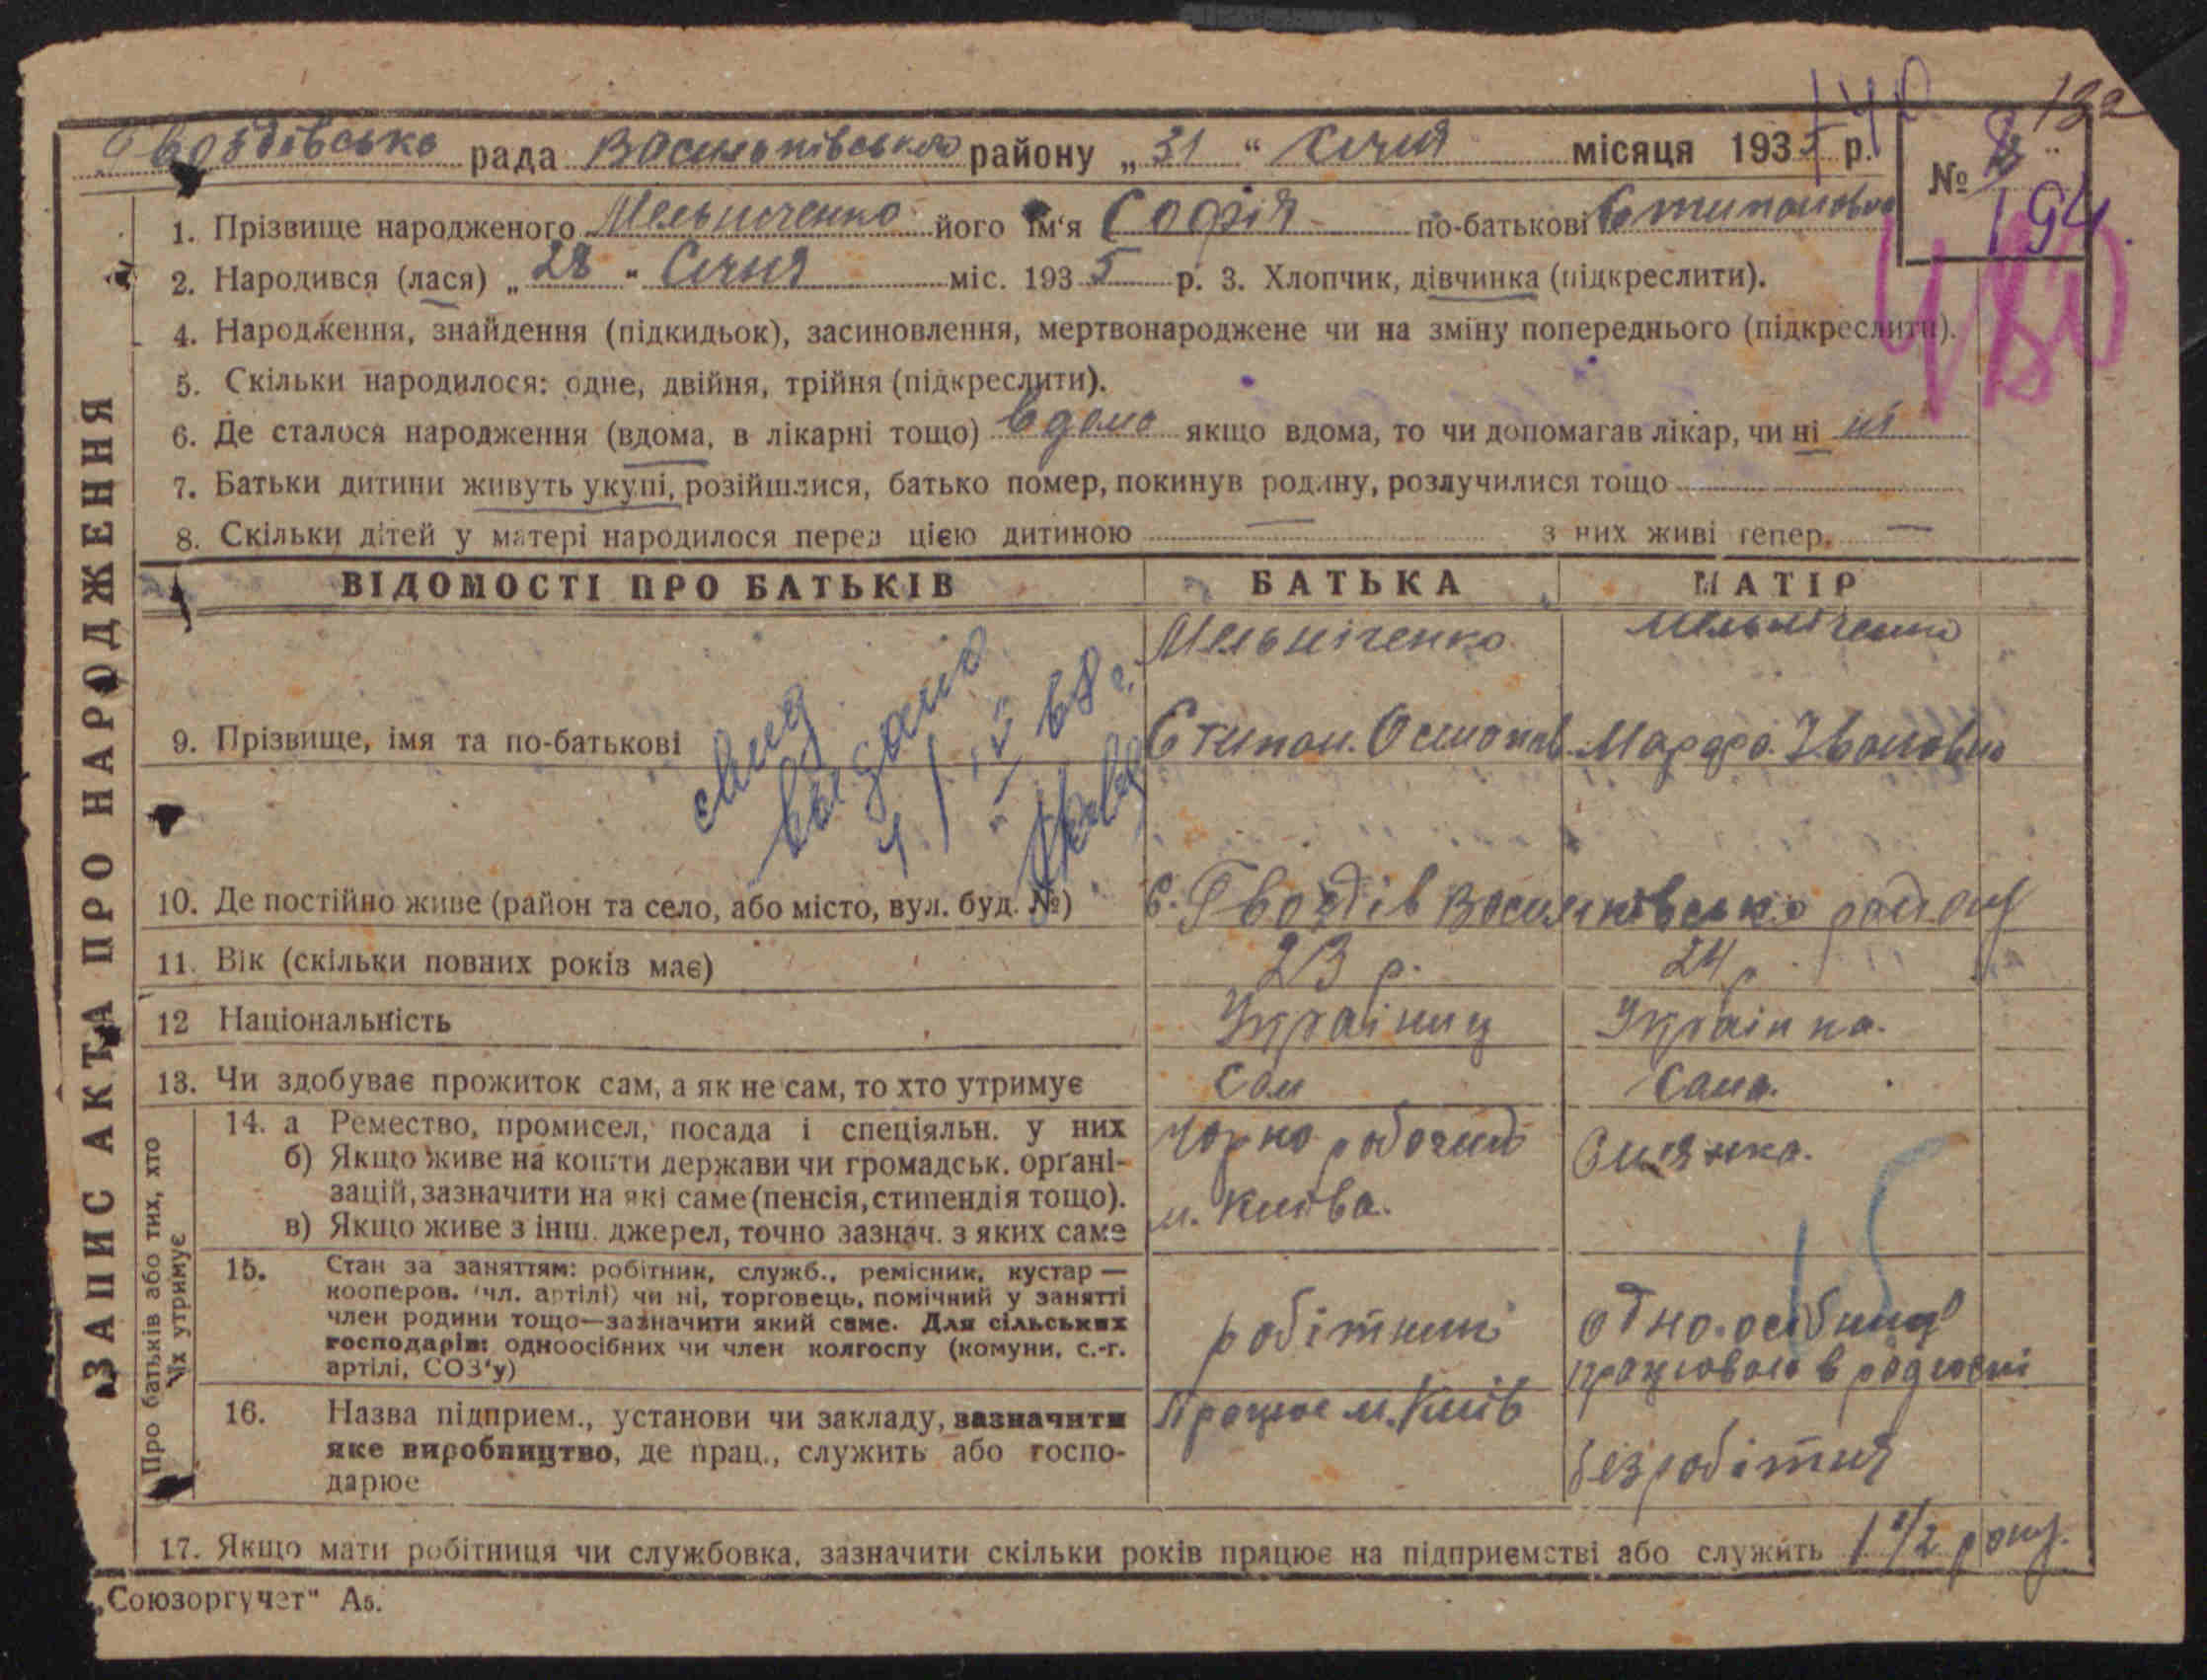 140 192
Гвоздівська рада Васильківського району „31" Січня місяця 1935 р. № 8
194
1. Прізвище народженого Мельниченко його ім'я Софія по-батькові Стипановна
480
2. Народився (лася) „28" Січня міс. 1935 р. 3. Хлопчик, дівчинка (підкреслити).
4. Народження, знайдення (підкидьок), засиновлення, мертвонароджене чи на зміну попереднього (підкреслити).
5. Скільки народилося: одне, двійня, трійня (підкреслити).
6. Де сталося народження (вдома, в лікарні тощо) вдома якщо вдома, то чи допомагав лікар, чи ні ні
7. Батьки дитини живуть укупі, розійшлися, батько помер, покинув родину, розлучилися тощо
8. Скільки дітей у матері народилося перед цією дитиною — з них живі тепер. —
ВІДОМОСТІ ПРО БАТЬКІВ БАТЬКА МАТІР
Мельніченко Мельніченко
9. Прізвище, імя та по-батькові Стипан. Осипов. Марфа Івановна
свид
выдано
68 г.
10. Де постійно живе (район та село, або місто, вул. буд. №) с. Гвоздів Васильківсько району
11. Вік (скільки повних років має) 23 р. 24 р.
12 Національність Україниц Українка.
13. Чи здобуває прожиток сам, а як не сам, то хто утримує Сам Сама.
14. а Ремество, промисел, посада і спеціяльн. у них Чорноробочий
б) Якщо живе на кошти держави чи громадськ. органі-
зацій, зазначити на які саме (пенсія, стипендія тощо). м. Київа.
в) Якщо живе з інш. джерел, точно зазнач. з яких саме
15. Стан за заняттям: робітник, служб., ремісник, кустар —
кооперов. (чл. артілі) чи ні, торговець, помічний у занятті
член родини тощо—зазначити який саме. Для сільських робітник одноосібниця
господарів: одноосібних чи член колгоспу (комуни, с.-г. працювала в радгоспі
артілі, СОЗ'у)
15
16. Назва підприєм., установи чи закладу, зазначити Працює м. Київ
яке виробництво, де прац., служить або госпо- безробітня
дарює
17. Якщо мати робітниця чи службовка, зазначити скільки років працює на підприємстві або служить 1 1/2 року.
„Союзоргучет" А5.
ЗАПИС АКТА ПРО НАРОДЖЕННЯ
Про батьків або тих, хто
їх утримує